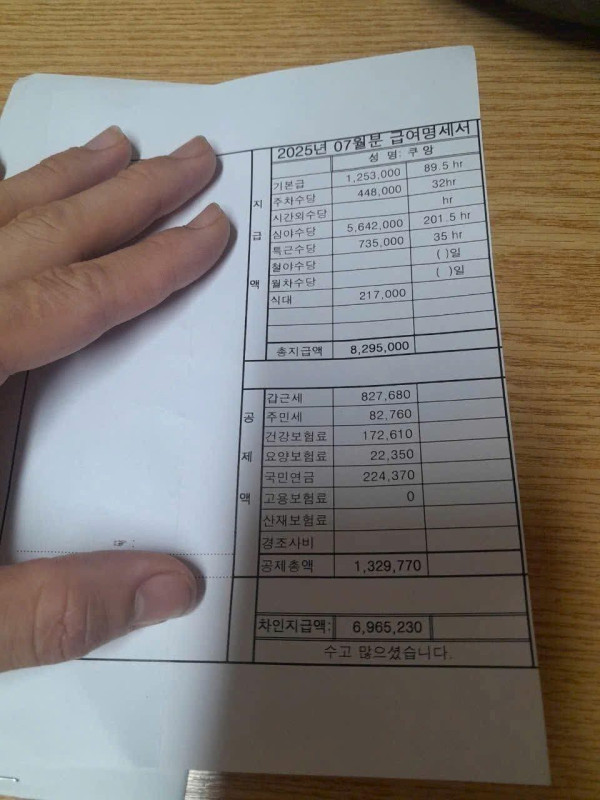 2025년 07월분 급여명세서
성 명: 쿠 앙
지 급 액
기본급 1,253,000 89.5 hr
주차수당 448,000 32hr
시간외수당 hr
심야수당 5,642,000 201.5 hr
특근수당 735,000 35 hr
철야수당 ( )일
월차수당 ( )일
식대 217,000
총지급액 8,295,000
공 제 액
갑근세 827,680
주민세 82,760
건강보험료 172,610
요양보험료 22,350
국민연금 224,370
고용보험료 0
산재보험료
경조사비
공제총액 1,329,770
☞ :
차인지급액: 6,965,230
수고 많으셨습니다.